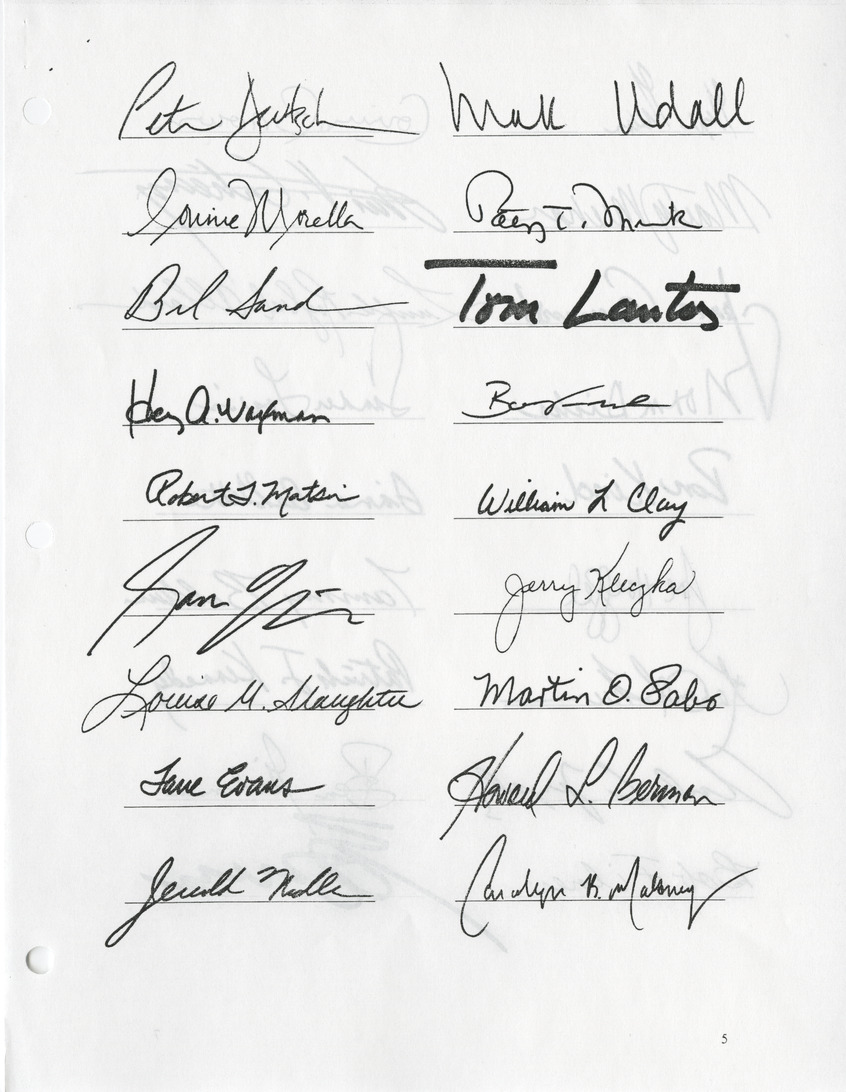 Peter Deutsch Mark Udall
Connie Morella Patsy T. Mink
Bill Tom Lantos
Henry A. Waxman
Robert T. Matsui William L Clay
Sam Jerry Kleczka
Louise M. Slaughter Martin O. Sabo
Lane Evans Howard L. Berman
Jerrold Nadler Carolyn B. Maloney
5